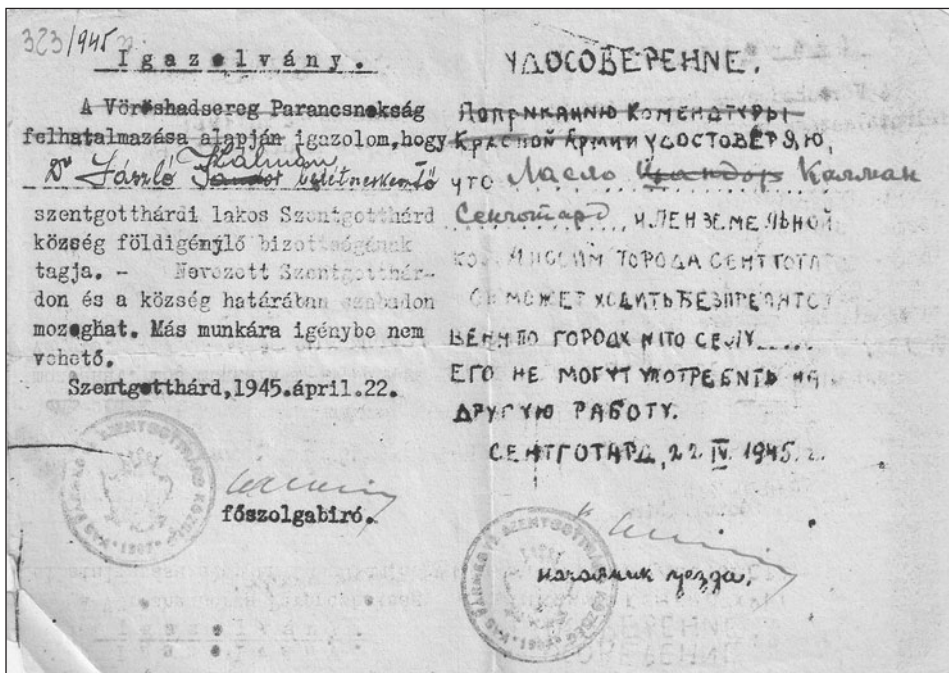 323/945
Igazolvány.
A Vöröshadsereg Parancsnokság
felhatalmazása alapján igazolom, hogy
Dr László Sándor Kálmán
szentgotthárdi lakos Szentgotthárd
község földigénylő bizottságának
tagja. - Nevezett Szentgotthár-
don és a község határában szabadon
mozoghat. Más munkára igénybe nem
vehető.
Szentgotthárd,1945.április.22.
főszolgabiró.
УДОСОВЕРЕНИЕ.
КОМЕНДАТУРЫ
КРАСНОЙ АРМИИ УДОСТОВЕРЯЮ,
ЧТО Ласло Шандор Калман
Сенготард, ЧЛЕН ЗЕМЕЛЬНОЙ
ГОРОДА СЕНТГОТАР
МОЖЕТ ХОДИТЬ БЕЗПРЕПЯТСТ
ВЕНН ПО ГОРОДУ
ЕГО НЕ МОГУТ УПОТРЕБИТЬ НА
ДРУГУЮ РАБОТУ.
СЕНТГОТАРД, 22 IV. 1945. г.
началник уезда.